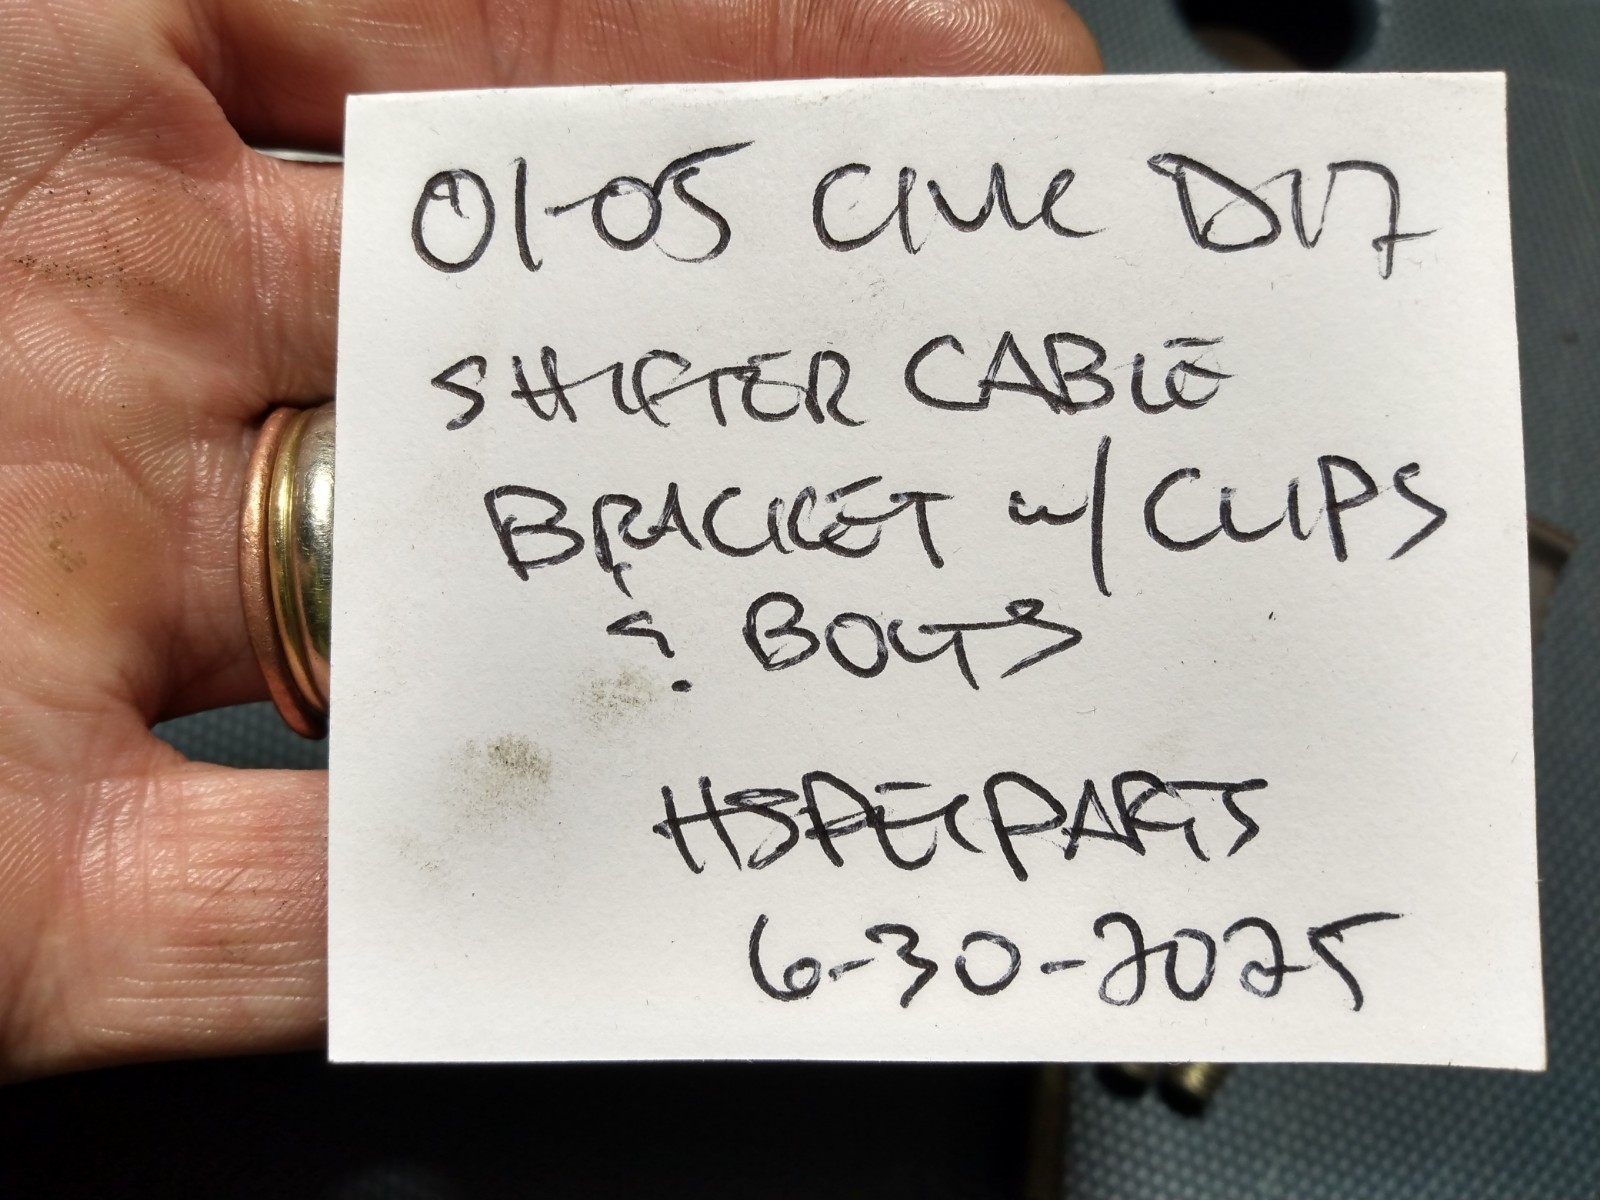 01-05 CIVIC D17
SHIFTER CABLE
BRACKET w/ CLIPS
& BOLTS
HSPECPARTS
6-30-2025